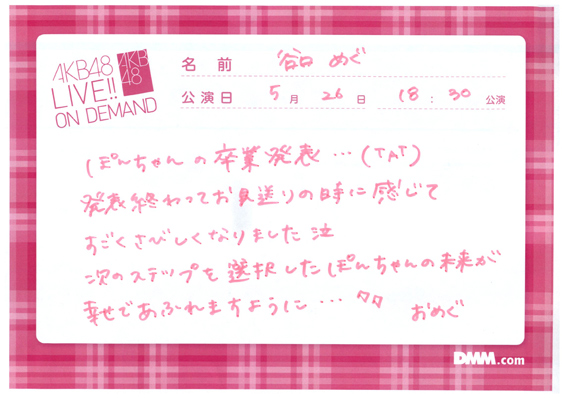 AKB48
LIVE!!
ON DEMAND
AKB
48
名 前 谷口 めぐ
公演日 5 月 26 日 18 : 30 公演
ぽんちゃんの卒業発表…(TAT)
発表終わってお見送りの時に感じて
すごくさびしくなりました泣
次のステップを選択したぽんちゃんの未来が
幸せであふれますように…
おめぐ
DMM.com